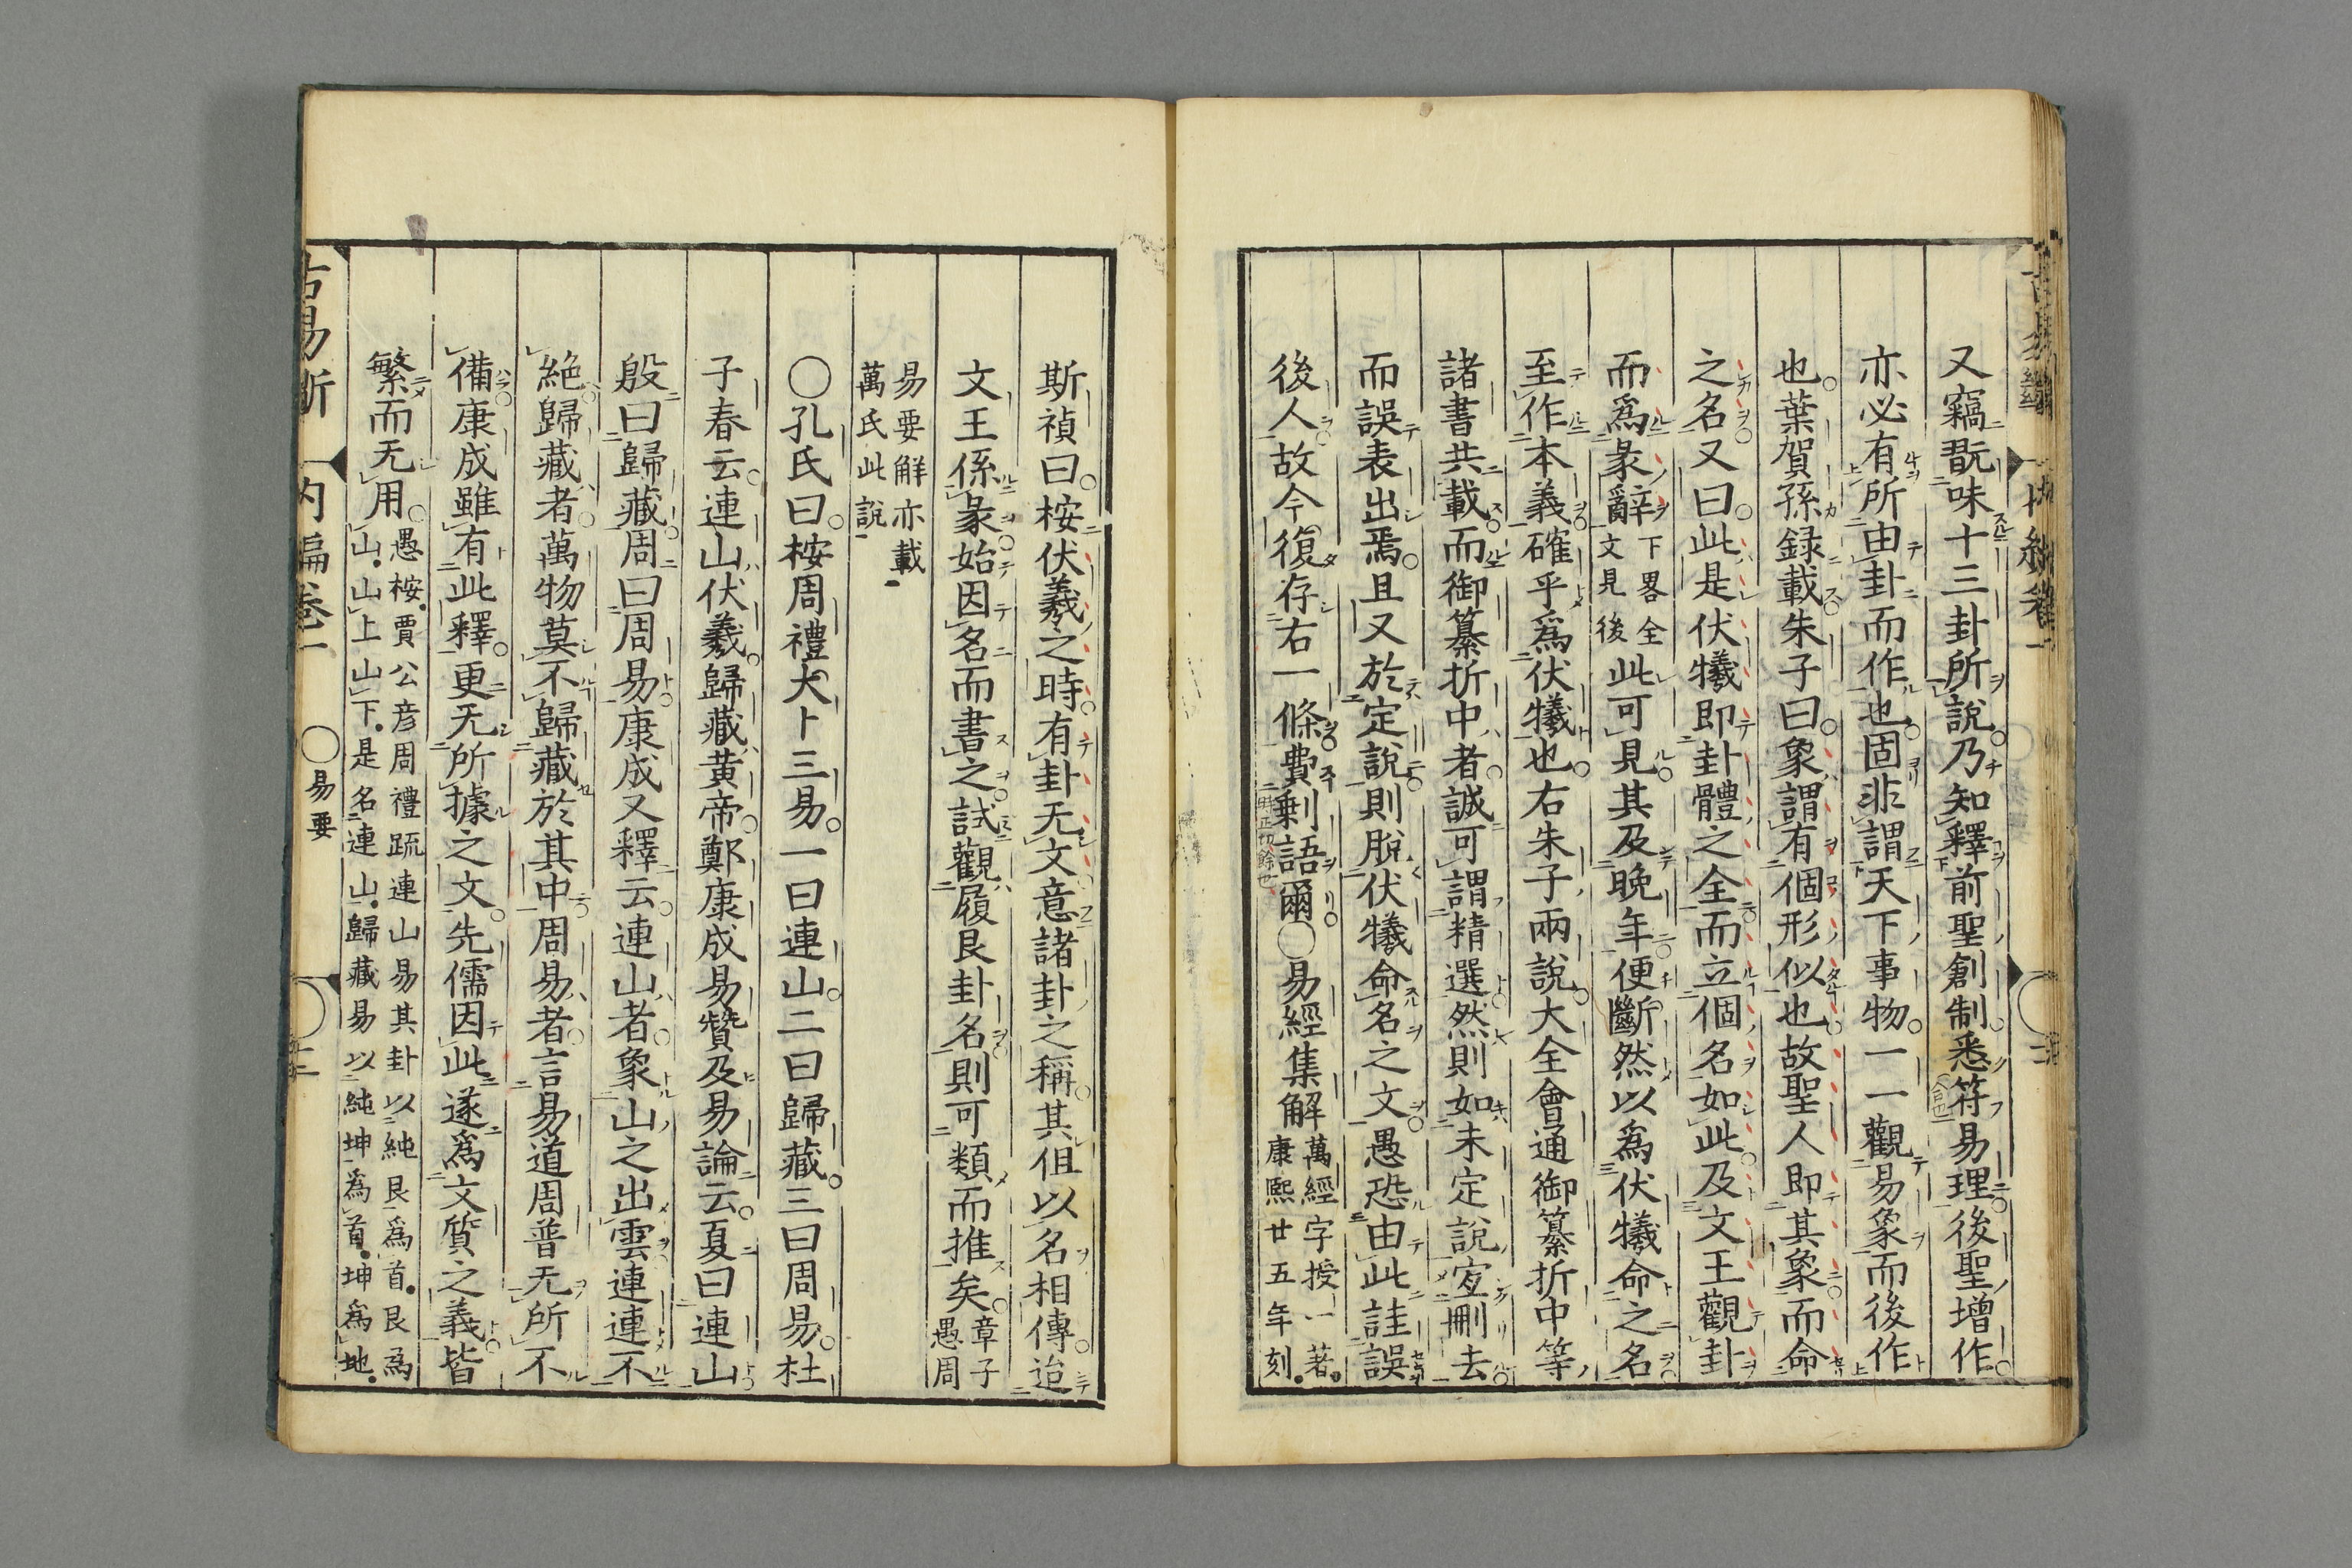 又竊翫味十三卦所說乃知釋前聖創制悉符易理後聖增作
亦必有所由卦而作也固非謂天下事物一一觀易象而後作
也葉賀孫録載朱子曰象謂有個形似也故聖人即其象而命
之名又曰此是伏犧即卦體之全而立個名如此及文王觀卦
而爲彖辭下畧全文見後此可見其及晚年便斷然以爲伏犧命之名
至作本義確乎爲伏犧也右朱子兩說大全會通御纂折中等
諸書共載而御纂折中者誠可謂精選然則如未定說宐刪去
而誤表出焉且又於定說則脫伏犧命名之文愚恐由此註誤
後人故今復存右一條費剩語爾○易經集解萬經字授一著康熙廿五年刻
斯禎曰桉伏羲之時有卦无文意諸卦之稱其但以名相傳迨
文王係彖始因名而書之試觀履艮卦名則可類而推矣章子愚周
易要解亦載萬氏此說
○孔氏曰桉周禮大卜三易一曰連山二曰歸藏三曰周易杜
子春云連山伏羲歸藏黄帝鄭康成易贊及易論云夏曰連山
殷曰歸藏周曰周易康成又釋云連山者象山之出雲連連不
絶歸藏者萬物莫不歸藏於其中周易者言易道周普无所不
備康成雖有此釋更无所據之文先儒因此遂爲文質之義皆
繁而无用愚桉賈公彦周禮䟽連山易其卦以純艮爲首艮爲山山上山下是名連山歸藏易以純坤爲首坤爲地
古易斷 内編卷一 ○易要